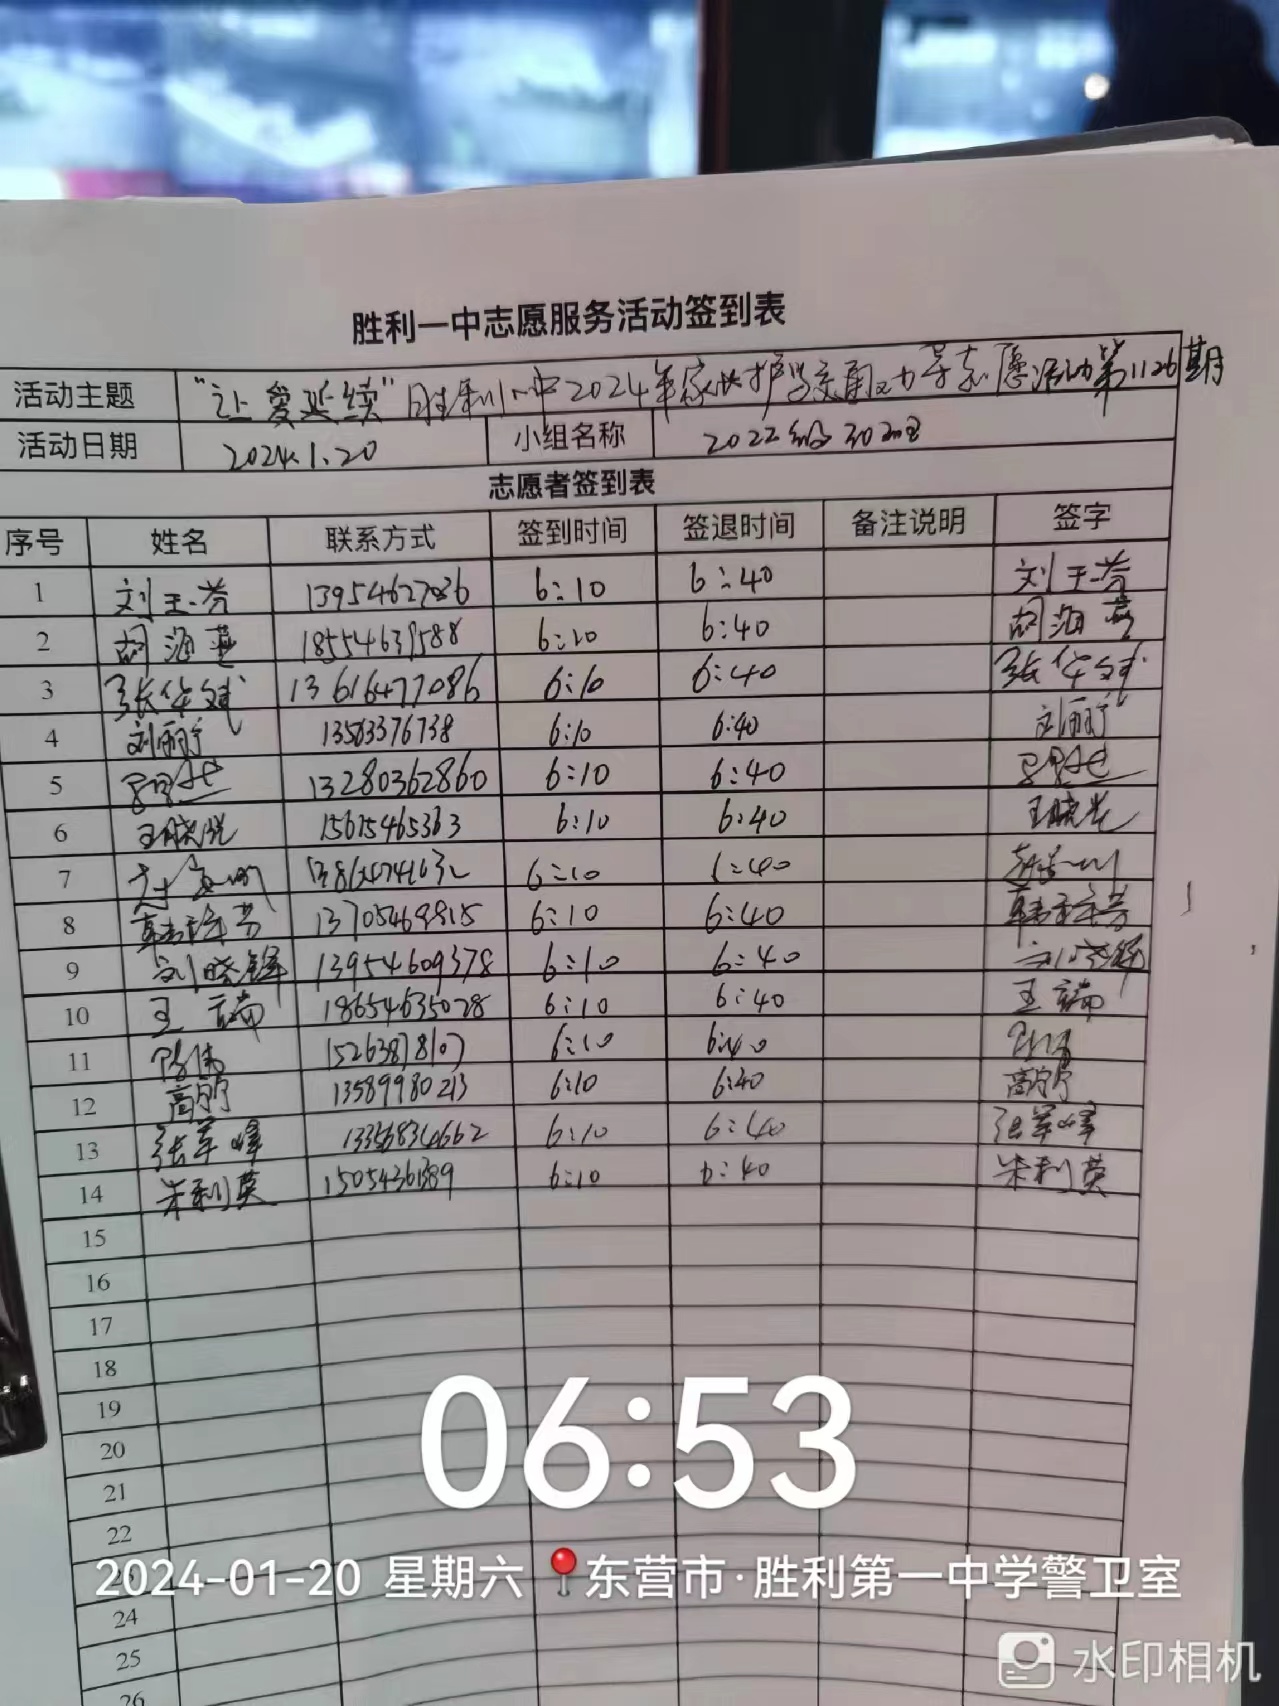 胜利一中志愿服务活动签到表
活动主题 "让爱延续"胜利一中2024年家长护学交通劝导志愿活动第1126期
活动日期 2024.1.20 小组名称 2022级30班
志愿者签到表
序号 姓名 联系方式 签到时间 签退时间 备注说明 签字
1 刘玉芬 13954627036 6:10 6:40 刘玉芬
2 胡海燕 18554639588 6:10 6:40 胡海燕
3 张华斌 13616477086 6:10 6:40 张华斌
4 刘丽 13563376738 6:10 6:40 刘丽
5 13280362860 6:10 6:40
6 王晓光 15615465363 6:10 6:40 王晓光
7 6:10 6:40
8 韩 13705469815 6:10 6:40 韩
9 刘晓锋 13954609378 6:10 6:40 刘晓锋
10 王瑞 18654635028 6:10 6:40 王瑞
11 15263878107 6:10 6:40
12 高宁 13589980213 6:10 6:40 高宁
13 张军峰 13356834662 6:10 6:40 张军峰
14 朱利英 15054361389 6:10 6:40 朱利英
15
16
17
18
19
20
21
22
23
24
25
26
06:53
2024-01-20 星期六 东营市·胜利第一中学警卫室
水印相机